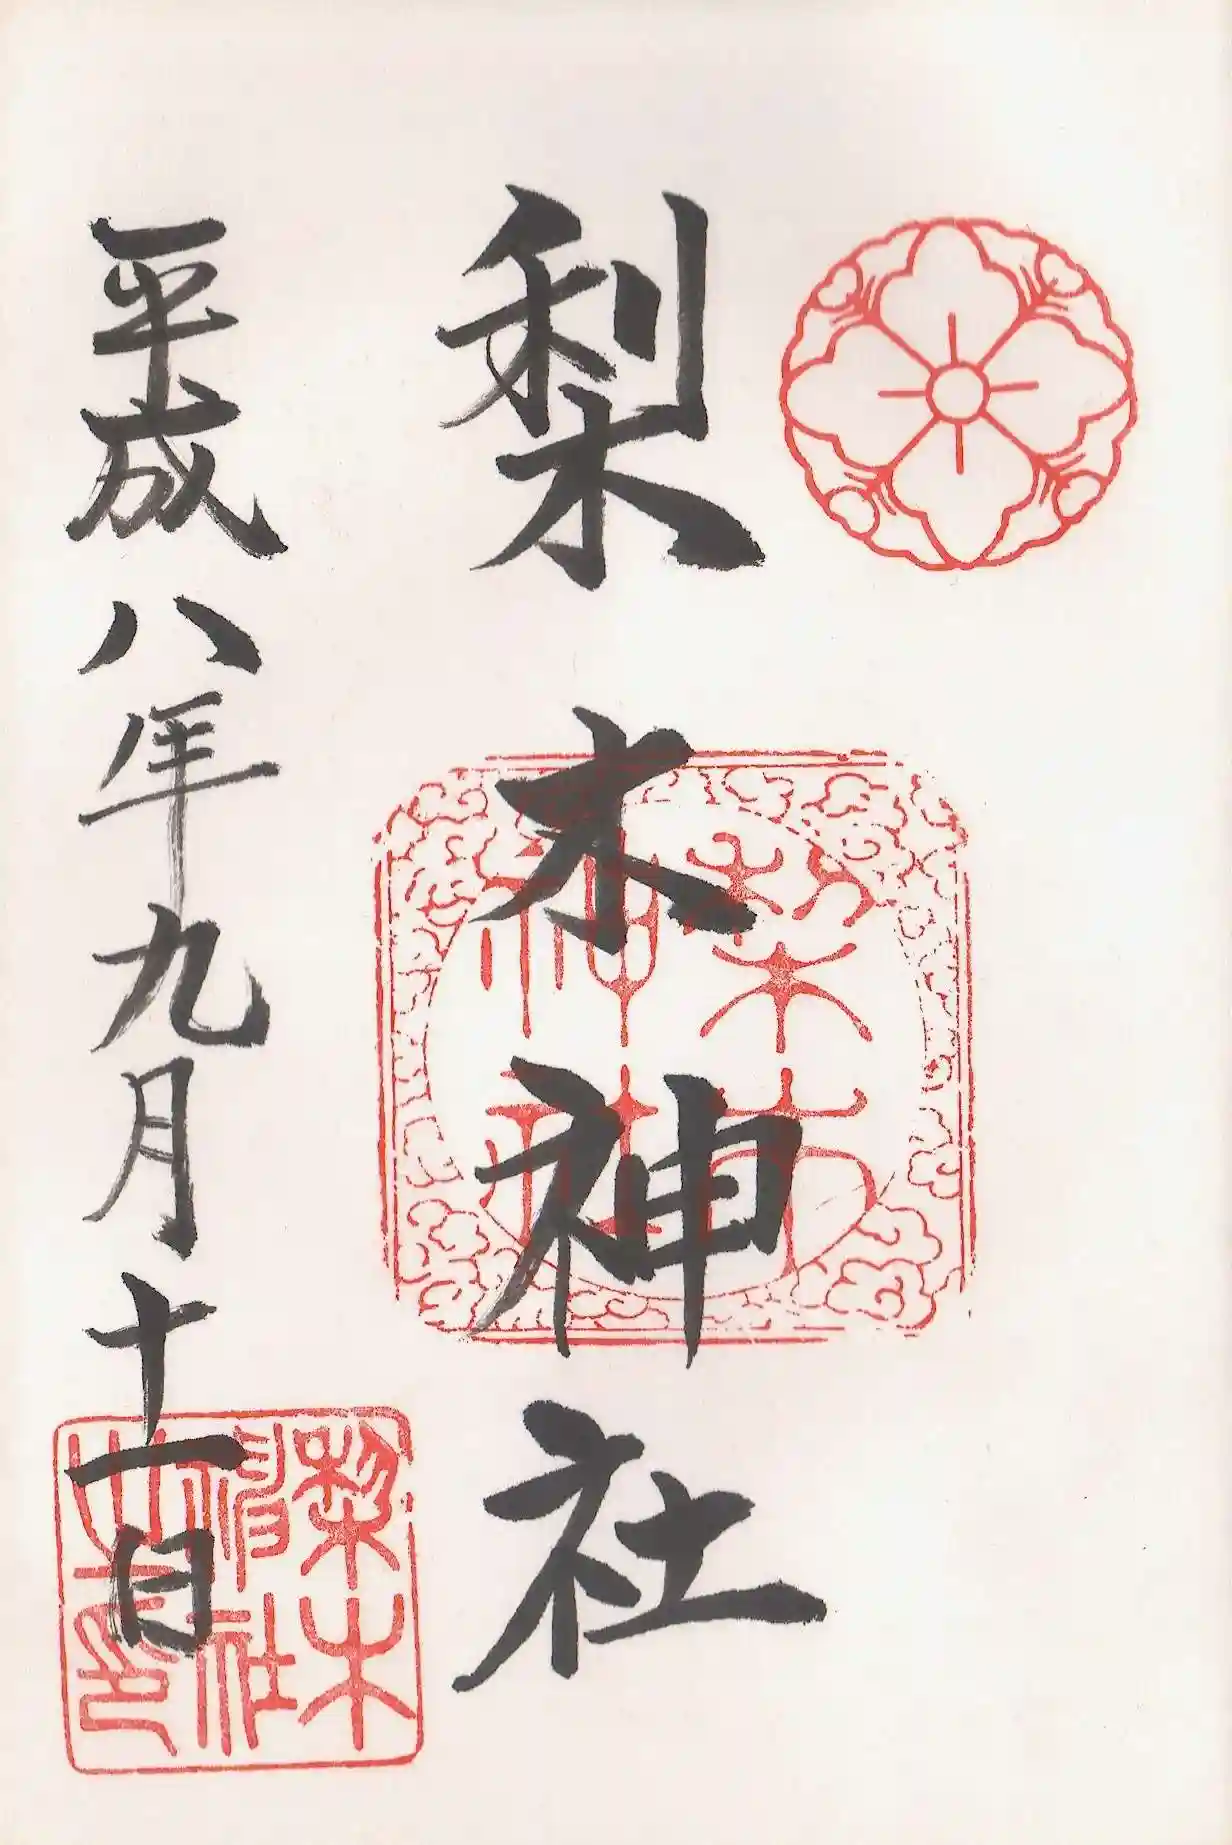 梨木神社
平成八年九月十一日
梨木
神社
梨木
神社
之印